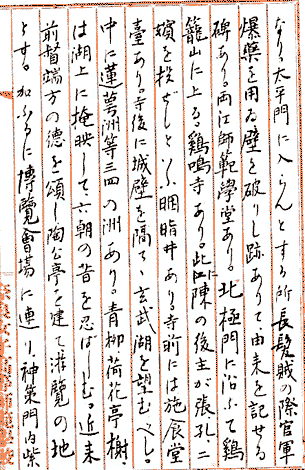 なり。太平門に入らんとする所長髮賊の際官軍
爆藥を用ゐ壁を破りし跡ありて由来を記せる
碑あり。両江師範學堂あり。北極門に沿ふて鷄
籠山に上る。鷄鳴寺あり。此に陳の後主が張孔二
嬪を投ぜしといふ胭脂井あり。寺前には施食
臺あり。寺後に城壁を隔てゝ玄武湖を望むべし。
中に蓮萼洲等三四の洲あり。青柳荷花亭榭、
は湖上に掩映して、六朝の昔を忍ばしむ。近来
前督端方の徳を頌し陶公亭を建て游覽の地
とす。加ふるに博覽會場に連り、神策門内柴